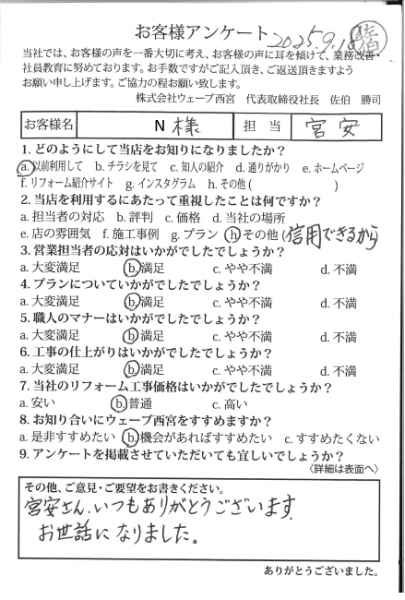 お客様アンケート 2025.9.18 佐伯
当社では、お客様の声を一番大切に考え、お客様の声に耳を傾けて、業務改善・
社員教育に努めております。お手数ですがご記入頂き、ご返送頂きますよう
お願い申し上げます。ご協力の程お願い致します。
株式会社ウェーブ西宮 代表取締役社長 佐伯 勝司
お客様名 N 様 担当 宮安
1. どのようにして当店をお知りになりましたか?
a.以前利用して b.チラシを見て c.知人の紹介 d.通りがかり e.ホームページ
f.リフォーム紹介サイト g.インスタグラム h.その他( )
2. 当店を利用するにあたって重視したことは何ですか?
a.担当者の対応 b.評判 c.価格 d.当社の場所
e.店の雰囲気 f.施工事例 g.プラン h.その他(信用できるから
3. 営業担当者の応対はいかがでしたでしょうか?
a.大変満足 b.満足 c.やや不満 d.不満
4. プランについていかがでしたでしょうか?
a.大変満足 b.満足 c.やや不満 d.不満
5. 職人のマナーはいかがでしたでしょうか?
a.大変満足 b.満足 c.やや不満 d.不満
6. 工事の仕上がりはいかがでしたでしょうか?
a.大変満足 b.満足 c.やや不満 d.不満
7. 当社のリフォーム工事価格はいかがでしたでしょうか?
a.安い b.普通 c.高い
8. お知り合いにウェーブ西宮をすすめますか?
a.是非すすめたい b.機会があればすすめたい c.すすめたくない
9. アンケートを掲載させていただいても宜しいでしょうか?
〈詳細は表面へ〉
その他、ご意見・ご要望をお書きください。
宮安さん、いつもありがとうございます。
お世話になりました。
ありがとうございました。